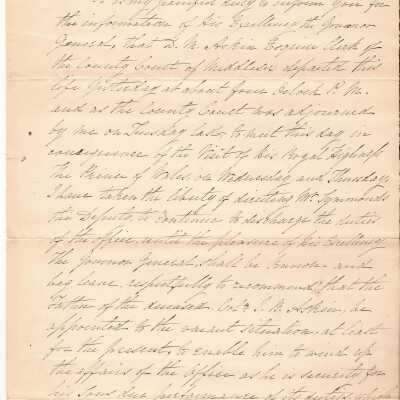 It is my painful duty to inform you for
the information of His Excellency the Governor
General, that D. M. Askin Esquire Clerk of
the County Court of Middlesex departed this
life Yesterday at about four O'clock P. M.
and as the County Court was adjourned
by me on Tuesday last, to meet this day in
consequence of the Visit of His Royal Highness
the Prince of Wales on Wednesday and Thursday
I have taken the liberty of directing Mr. Symmonds
the Deputy, to continue to discharge the duties
of the Office, until the pleasure of his Excellency
the Governor General, shall be known - and
beg leave, respectfully to recommend, that the
Father of the deceased, Col. J. B. Askin, be
appointed to the vacant situation, at least
for the present, to enable him to wind up
the affairs of the Office as he is security for
his Sons due performance of its duties, which